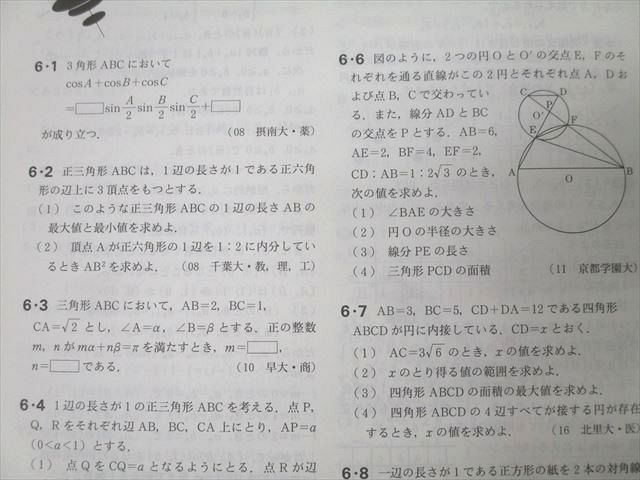 6・1 3角形ABCにおいて
cosA+cosB+cosC
=□sin A/2 sin B/2 sin C/2 +□
が成り立つ. (08 摂南大・薬)
6・2 正三角形ABCは,1辺の長さが1である正六角
形の辺上に3頂点をもつとする.
(1) このような正三角形ABCの1辺の長さABの
最大値と最小値を求めよ.
(2) 頂点Aが正六角形の1辺を1:2に内分してい
るときAB²を求めよ. (08 千葉大・教,理,工)
6・3 三角形ABCにおいて,AB=2,BC=1,
CA=√2 とし,∠A=α,∠B=βとする.正の整数
m,nがmα+nβ=πを満たすとき,m=□,
n=□である. (10 早大・商)
6・4 1辺の長さが1の正三角形ABCを考える.点P,
Q,Rをそれぞれ辺AB,BC,CA上にとり,AP=a
(0<a<1)とする.
(1) 点QをCQ=aとなるようにとる.点Rが辺
6・6 図のように,2つの円OとO′の交点E,Fのそ
れぞれを通る直線がこの2円とそれぞれ点A,Dお
よび点B,Cで交わってい
る.また,線分ADとBC
の交点をPとする.AB=6,
AE=2,BF=4,EF=2,
CD:AB=1:2√3 のとき,
次の値を求めよ.
(1) ∠BAEの大きさ
(2) 円Oの半径の大きさ
(3) 線分PEの長さ
(4) 三角形PCDの面積 (11 京都学園大)
C D
P
O′
E F
A O B
6・7 AB=3,BC=5,CD+DA=12である四角形
ABCDが円に内接している.CD=xとおく.
(1) AC=3√6 のとき,xの値を求めよ.
(2) xのとり得る値の範囲を求めよ.
(3) 四角形ABCDの面積の最大値を求めよ.
(4) 四角形ABCDの4辺すべてが接する円が存在
するとき,xの値を求めよ. (16 北里大・医)
6・8 一辺の長さが1である正方形の紙を2本の対角線